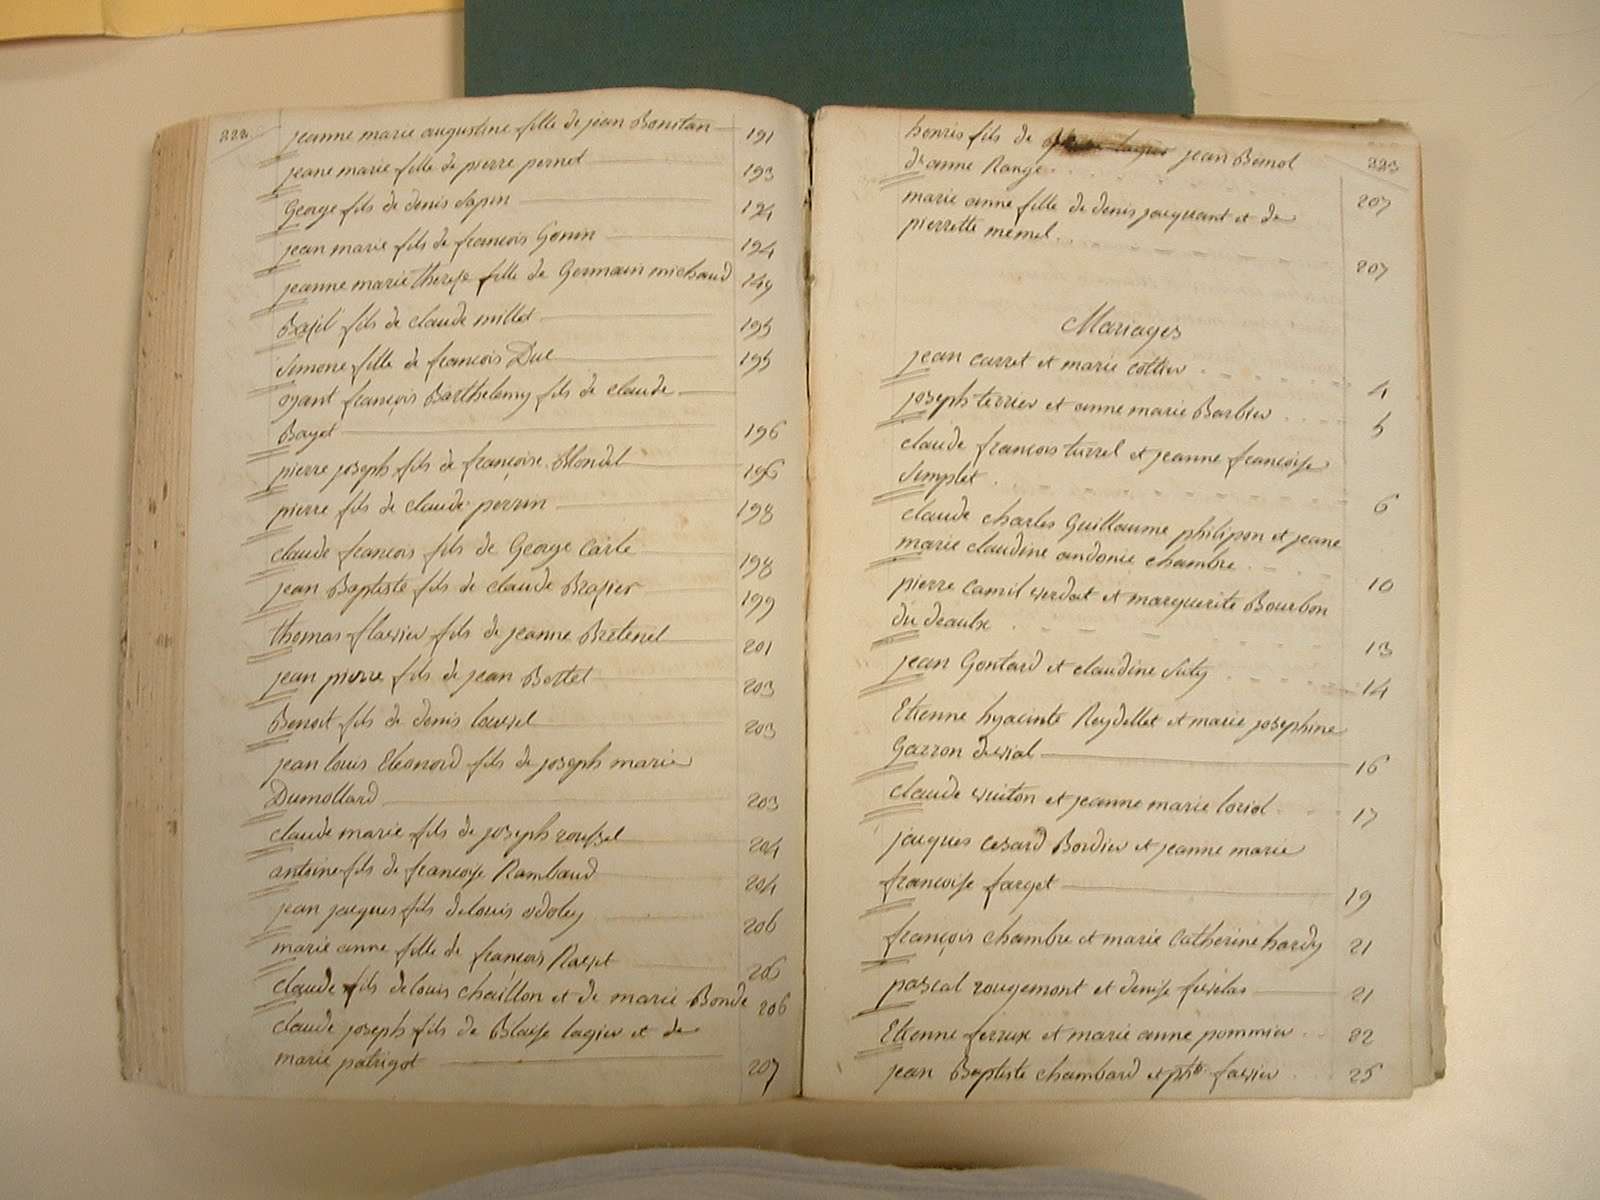 222
jeanne marie augustine fille de jean Bonitan 191
jeane marie fille de pierre pernet 193
George fils de denis Sapin 194
jean marie fils de françois Gonin 194
jeanne marie therese fille de Germain michaud 149
Basil fils de claude millet 195
Simone fille de françois Duc 195
oyant françois Barthelemy fils de claude
Bayet 196
pierre joseph fils de françoise Blondel 196
pierre fils de claude perrin 198
claude francois fils de George Carle 198
jean Baptiste fils de claude Brasier 199
thomas flavien fils de jeanne Bretenil 201
jean pierre fils de jean Bottet 203
Benoit fils de denis 203
jean louis Eleonord fils de joseph marie
Dumollard 203
claude marie fils de joseph roussel 204
antoine fils de françoise Rambaud 204
jean jacques fils de louis 206
marie anne fille de francois Ravet 206
claude fils de louis chaillon et de marie Bonde 206
claude joseph fils de Blaise lagier et de
marie patrigot 207
223
henris fils de jean Benol
de anne Range 207
marie anne fille de denis jacquant et de
pierrette memel 207
Mariages
jean carret et marie cottier 4
joseph terrier et anne marie Barbier 5
claude francois turrel et jeanne françoise
Simplet 6
claude charles Guillaume philipon et jeane
marie claudine andonie chambre 10
pierre Camil verdat et marguerite Bourbon
du deaulx 13
jean Gontard et claudine Suty 14
Etienne hyacinte Reydellet et marie josephine
Garron deval 16
claude vuiton et jeanne marie loriol 17
jacques Cesard Bordier et jeanne marie
françoise farget 19
françois chambre et marie Catherine hardy 21
pascal rougemont et denise 21
Etienne ferrux et marie anne pommier 22
jean Baptiste chambard et favier 25